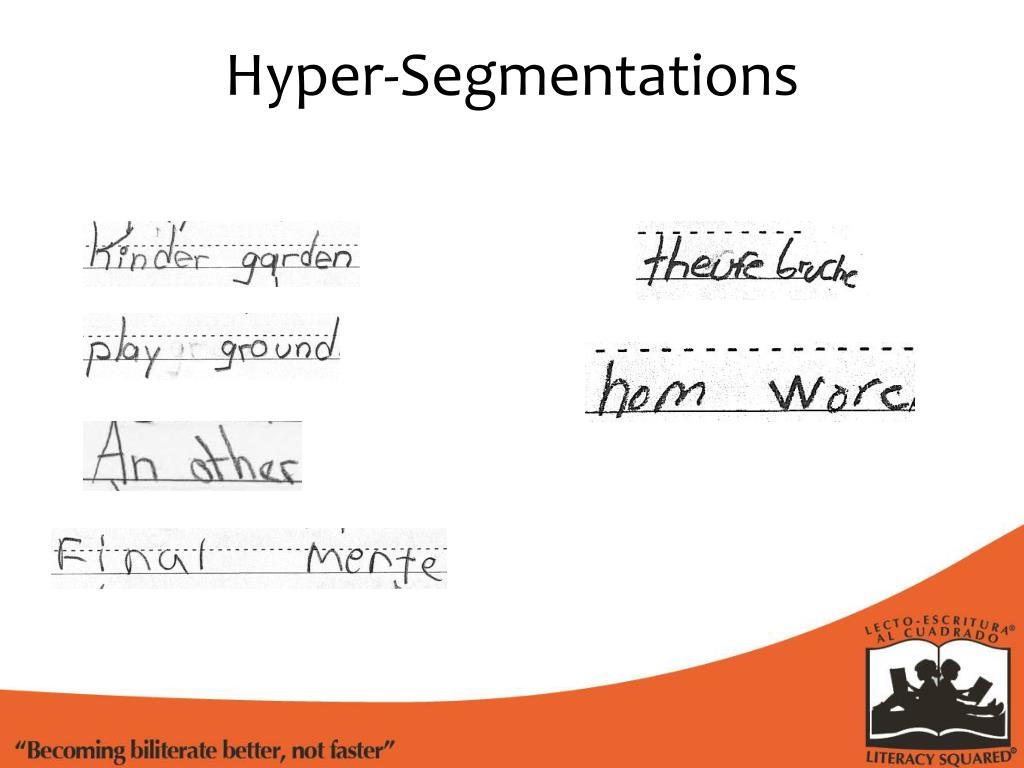 Hyper-Segmentations
Kinder garden
play gr ground
An other
Final Mente
theufe bruche
hom worc
LECTO-ESCRITURA®
AL CUADRADO
LITERACY SQUARED®
“Becoming biliterate better, not faster”